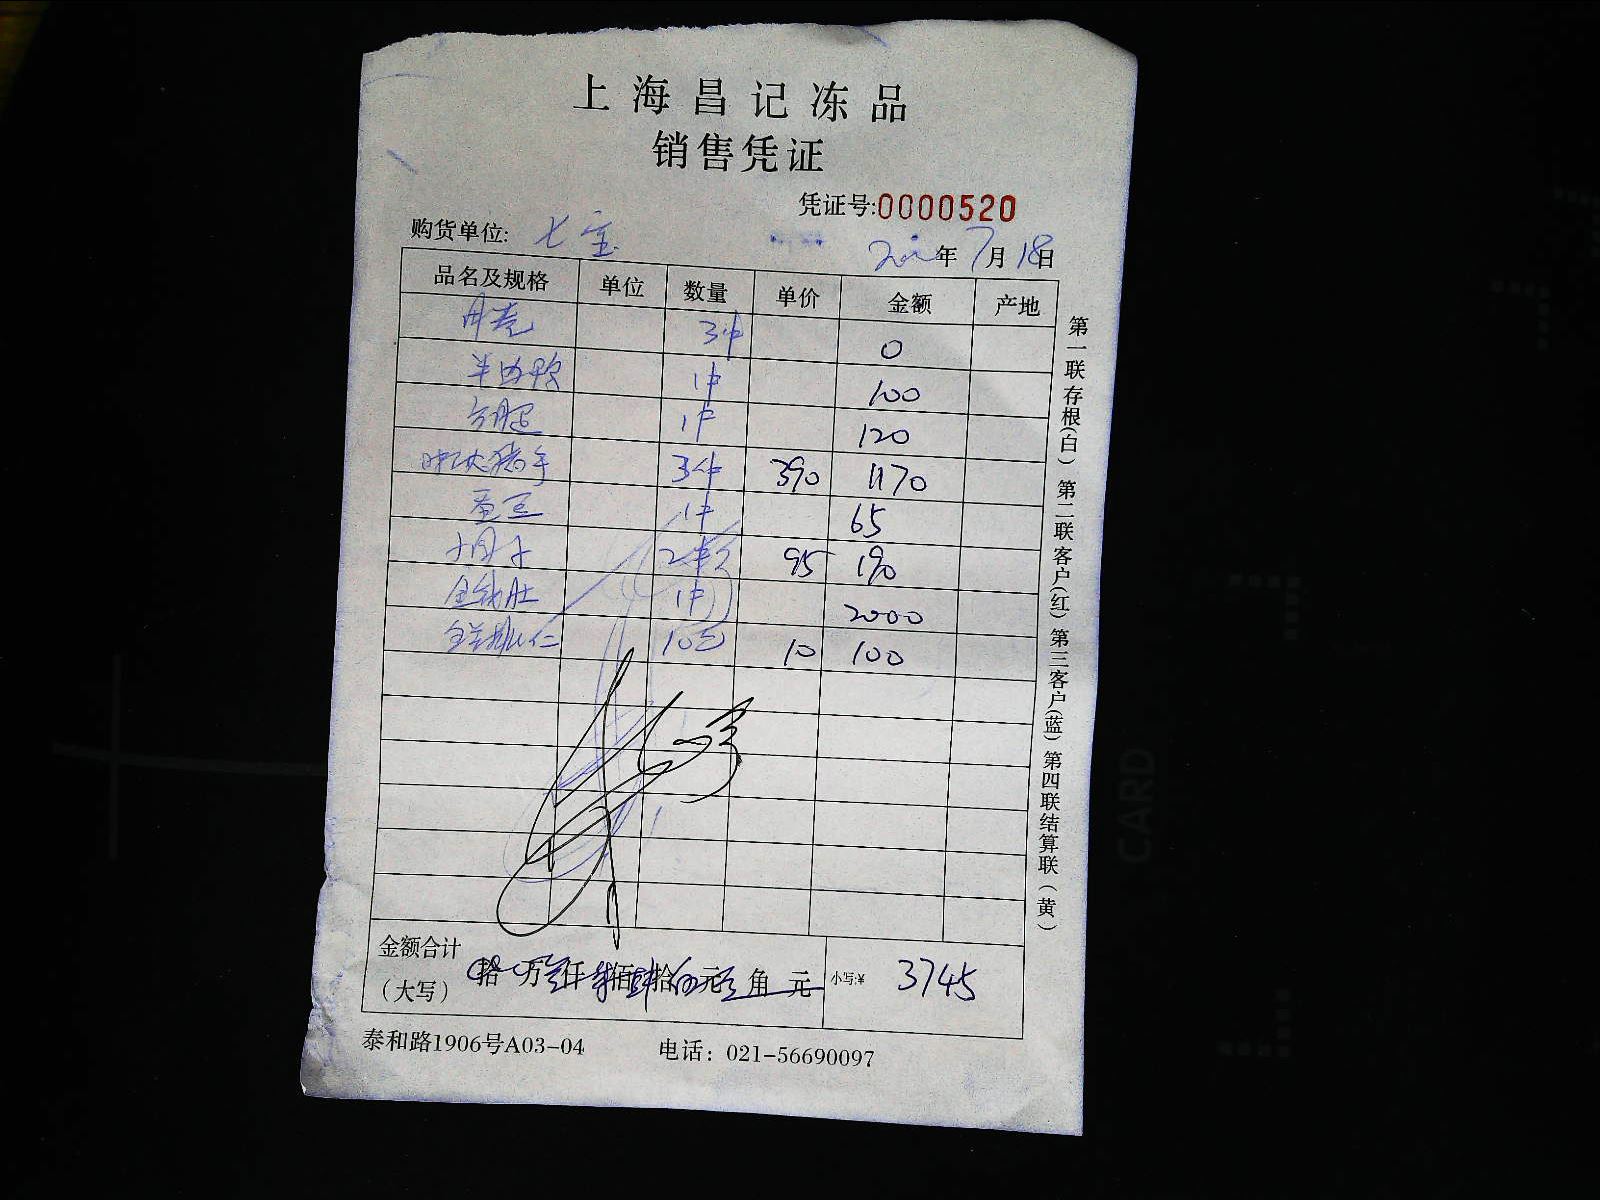 上海昌记冻品
销售凭证
凭证号:0000520
购货单位: 七宝
年 7月18日
品名及规格 单位 数量 单价 金额 产地
3件 0
半边鸭 1件 100
方腿 1件 120
猪手 3件 390 1170
蚕豆 1件 65
2 95 190
金钱肚 1件 2000
10包 10 100
金额合计
(大写) 拾 万叁仟柒佰肆拾伍元 角 元 小写:¥ 3745
泰和路1906号A03-04 电话: 021-56690097
第一联存根(白) 第二联客户(红) 第三客户(蓝) 第四联结算联(黄)